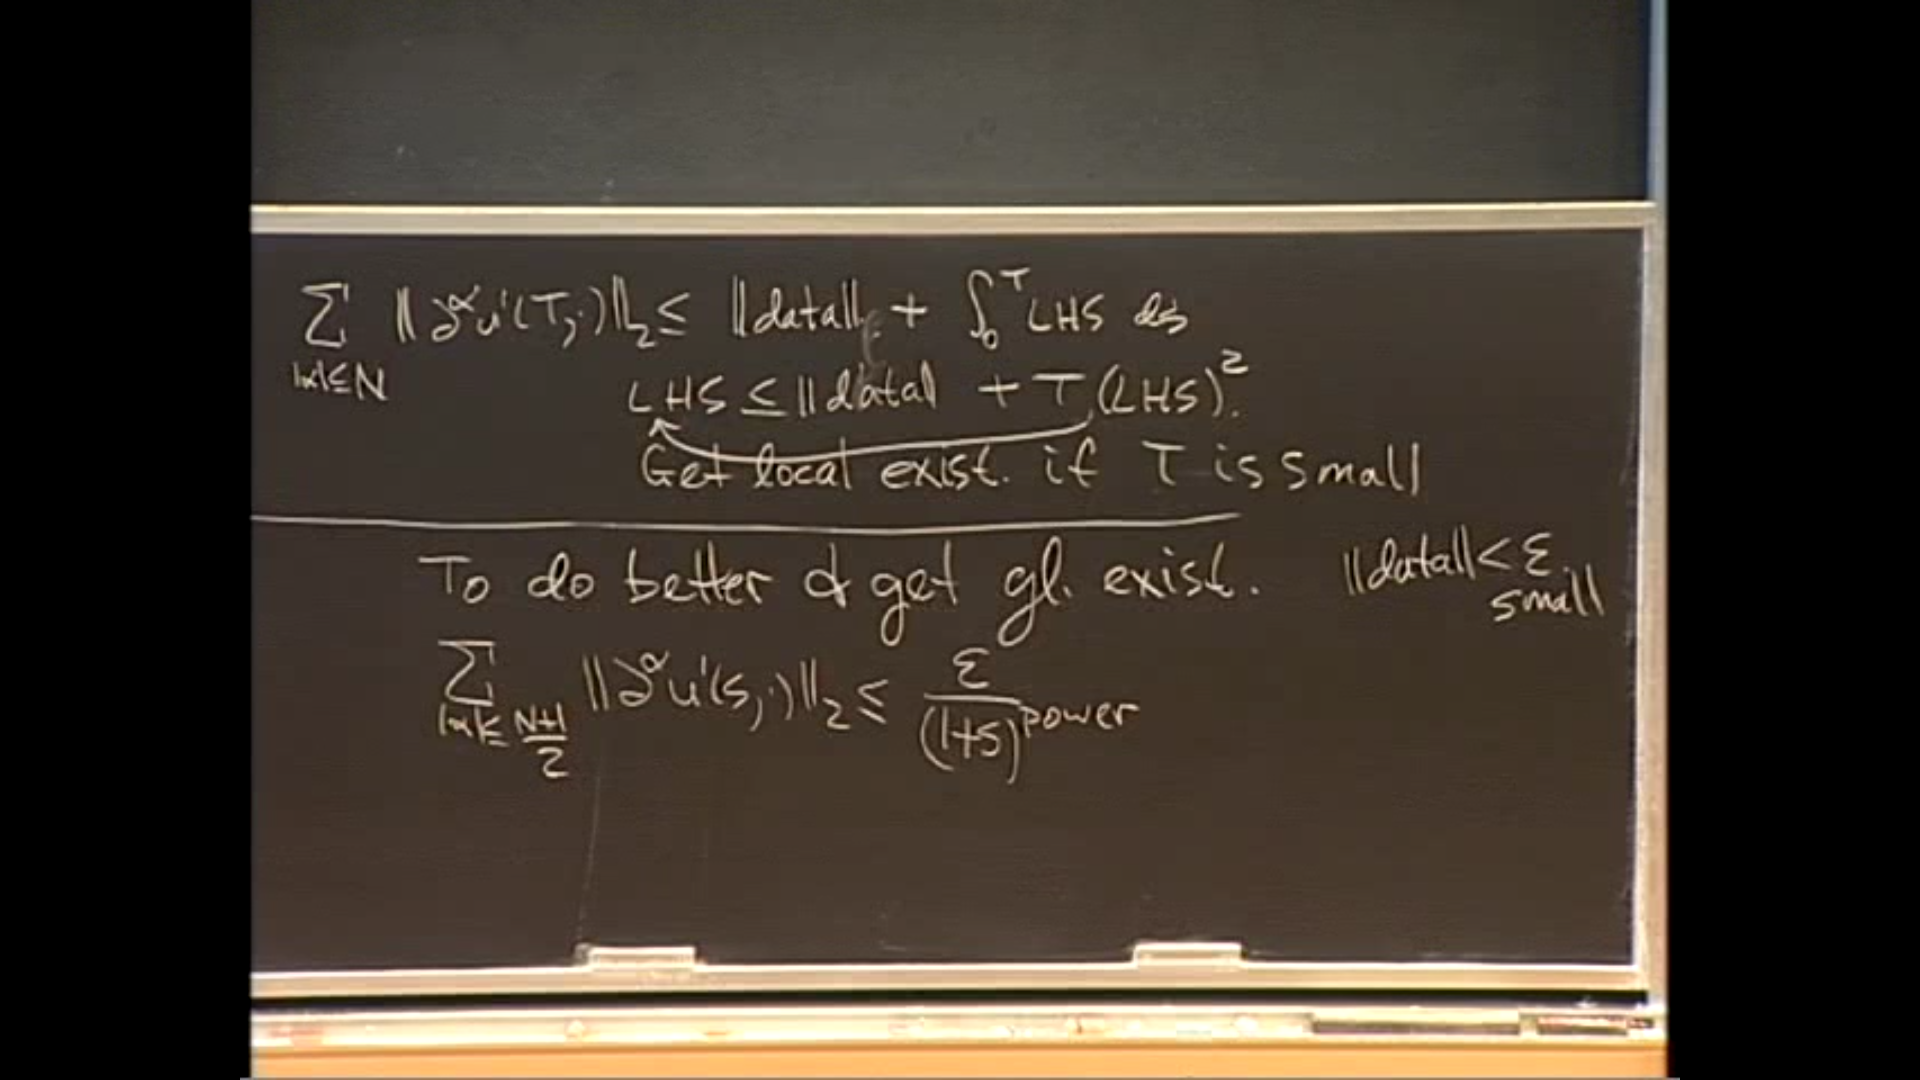 ∑_{|α|≤N} ‖∂^α u'(T,·)‖_2 ≤ ‖data‖ + ∫_0^T LHS ds
LHS ≤ ‖data‖ + T (LHS)^2.
Get local exist. if T is small
To do better & get gl. exist. ‖data‖ < ε small
∑_{|α|≤ (N+1)/2} ‖∂^α u'(s,·)‖_2 ≤ ε/(1+s)^{power}